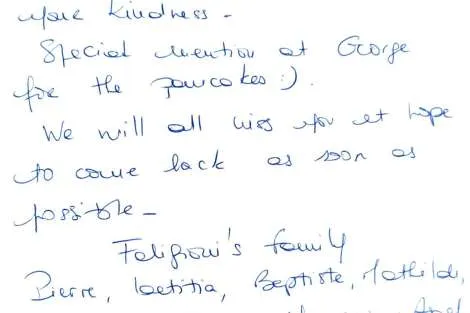 your kindness -
Special mention at George
for the pancakes :).
We will all miss you et hope
to come back as soon as
possible -
family
Pierre, Laetitia, Baptiste, Mathilde,
And